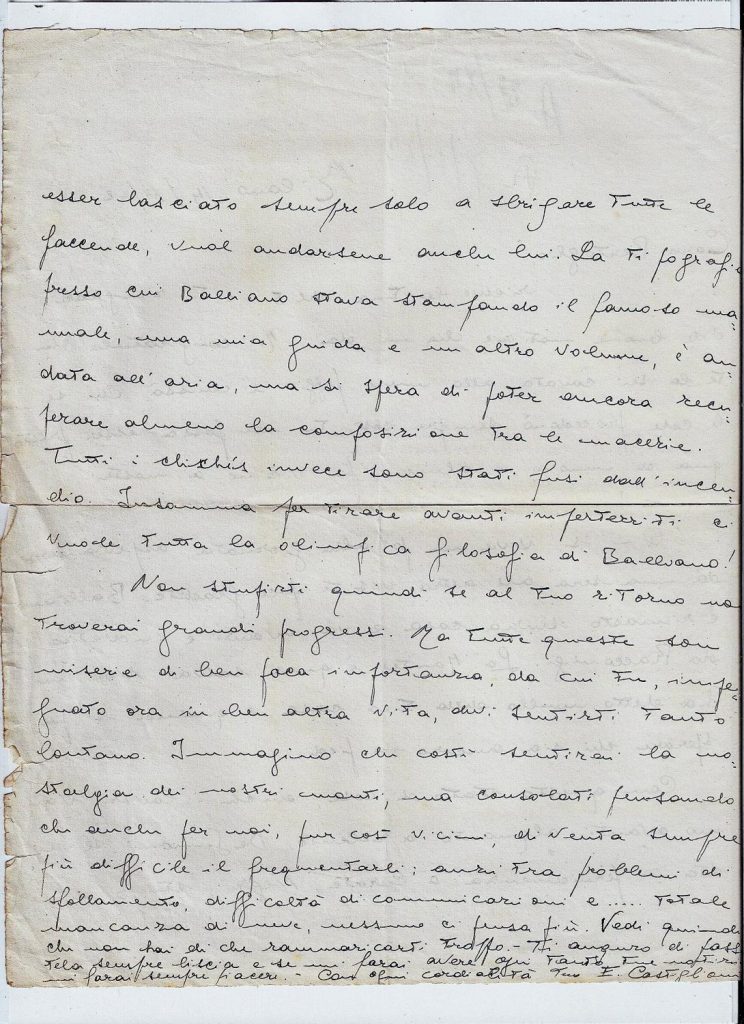 esser lasciato sempre solo a sbrigare tutte le
faccende, vuol andarsene anche lui. La tipografia
presso cui Balliano stava stampando il famoso ma-
nuale, una mia guida e un altro volume, è an-
data all'aria, ma si spera di poter ancora recu-
perare almeno la composizione tra le macerie.
Tutti i clichés invece sono stati fusi dall'incen-
dio. Insomma per tirare avanti imperterriti ci
vuole tutta la olimpica filosofia di Balliano!
Non stupirti quindi se al tuo ritorno no
troverai grandi progressi. Ma tutte queste son
miserie di ben poca importanza, da cui tu, impe-
gnato ora in ben altra vita, devi sentirti tanto
lontano. Immagino che costì sentirai la no-
stalgia dei nostri monti, ma consolati pensando
che anche per noi, pur così vicini, diventa sempre
più difficile il frequentarli; anzi tra problemi di
sfollamento, difficoltà di comunicazioni e ..... totale
mancanza di neve, nessuno ci pensa più. Vedi quindi
che non hai di che rammaricarti troppo. - Ti auguro di pass
tela sempre liscia e se mi farai avere ogni tanto tue notizie
mi farai sempre piacere. - Con ogni cordialità tuo E. Castiglioni